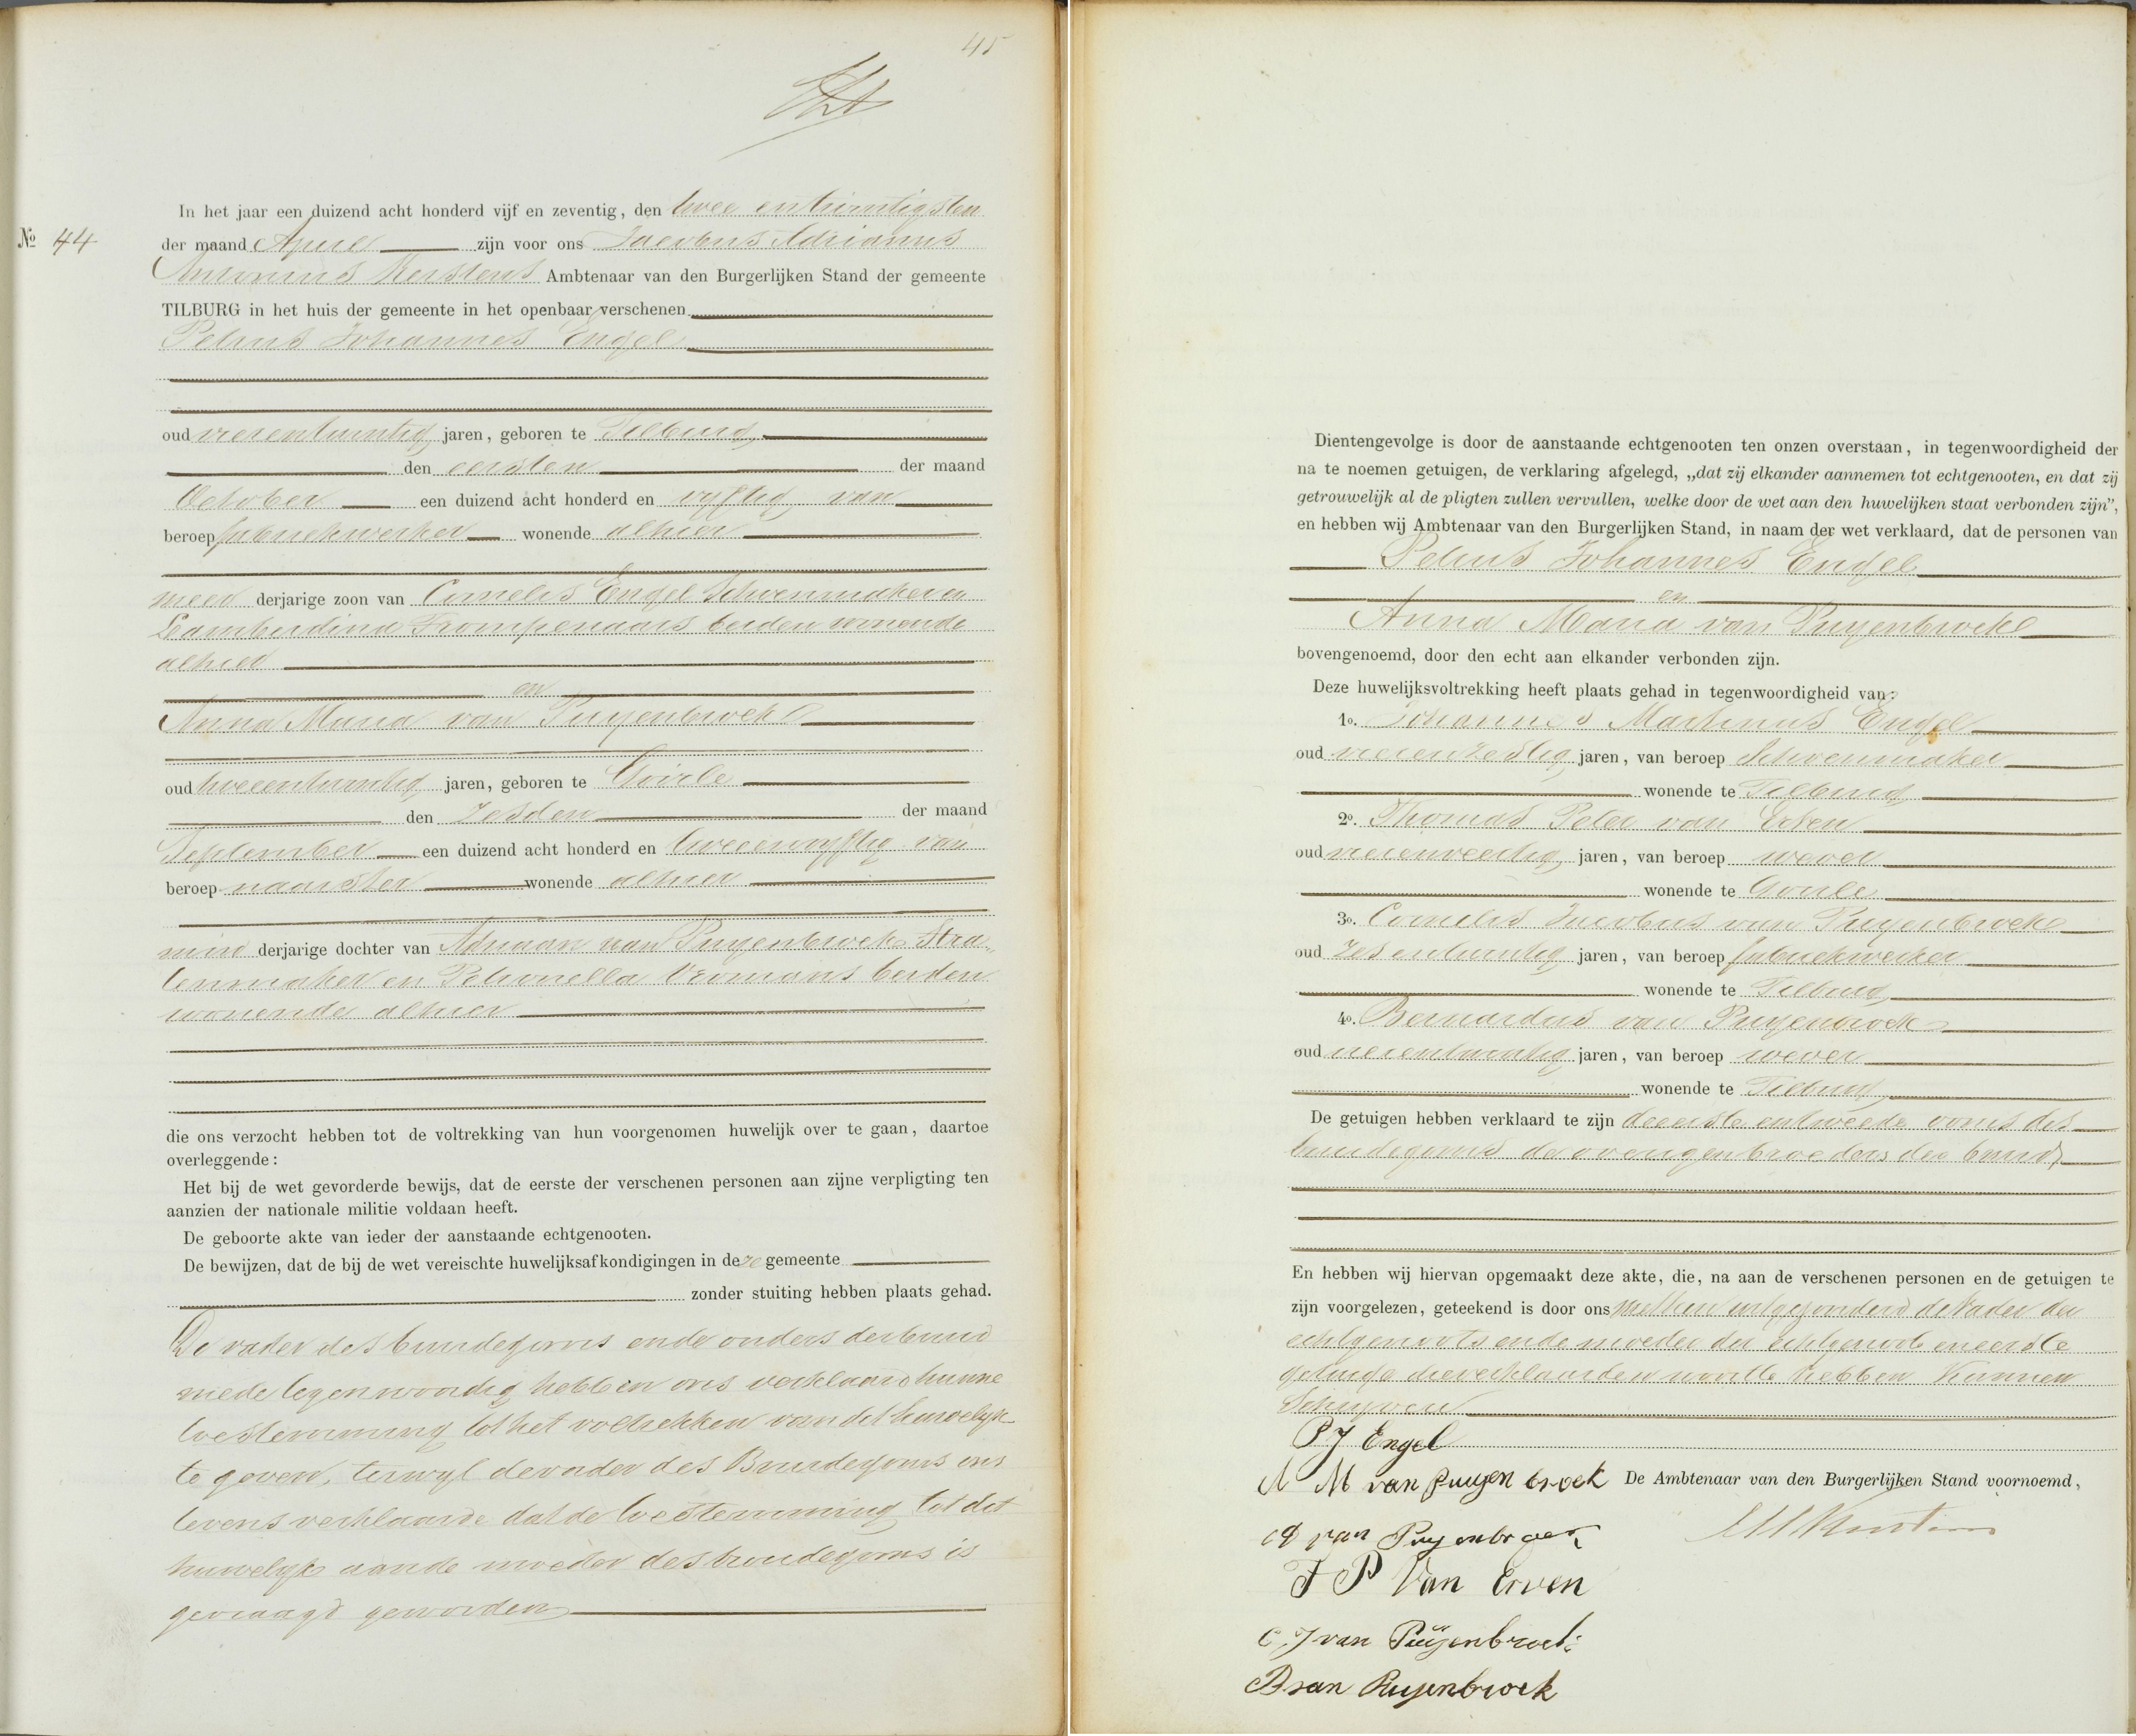 45
In het jaar een duizend acht honderd vijf en zeventig, den twee entwintigsten
№ 44
der maand April zijn voor ons Jacobus Adrianus
Antonius Kerstens Ambtenaar van den Burgerlijken Stand der gemeente
TILBURG in het huis der gemeente in het openbaar verschenen
Petrus Johannes Engel
oud vierentwintig jaren, geboren te Tilburg
den eersten der maand
October een duizend acht honderd en vyftig van
beroep fabriekwerker wonende alhier
meer derjarige zoon van Cornelis Engel Schoenmaker en
Lamberdina Trompenaars beiden wonende
alhier
en
Anna Maria van Puyenbroek
oud tweeentwintig jaren, geboren te Goirle
den zesden der maand
September een duizend acht honderd en tweeenvyftig van
beroep naaister wonende alhier
min derjarige dochter van Adriaan van Puyenbroek Stra
tenmaker en Petronella Vromans beiden
wonende alhier
die ons verzocht hebben tot de voltrekking van hun voorgenomen huwelijk over te gaan, daartoe
overleggende:
Het bij de wet gevorderde bewijs, dat de eerste der verschenen personen aan zijne verpligting ten
aanzien der nationale militie voldaan heeft.
De geboorte akte van ieder der aanstaande echtgenooten.
De bewijzen, dat de bij de wet vereischte huwelijksafkondigingen in deze gemeente
zonder stuiting hebben plaats gehad.
De vader des bruidegoms ende ouders der bruid
mede tegenwoordig hebben ons verklaard hunne
toestemming tot het voltrekken van dit huwelyk
te geven, terwyl de vader des Bruidegoms ons
tevens verklaarde dat de toestemming tot dit
huwelyk aan de moeder des bruidegoms is
gevraagd geworden
Dientengevolge is door de aanstaande echtgenooten ten onzen overstaan, in tegenwoordigheid der
na te noemen getuigen, de verklaring afgelegd, „dat zij elkander aannemen tot echtgenooten, en dat zij
getrouwelijk al de pligten zullen vervullen, welke door de wet aan den huwelijken staat verbonden zijn”,
en hebben wij Ambtenaar van den Burgerlijken Stand, in naam der wet verklaard, dat de personen van
Petrus Johannes Engel
en
Anna Maria van Puyenbroek
bovengenoemd, door den echt aan elkander verbonden zijn.
Deze huwelijksvoltrekking heeft plaats gehad in tegenwoordigheid van:
1o. Johannes Martinus Engel
oud vierenzestig jaren, van beroep Schoenmaker
wonende te Tilburg
2o. Thomas Peter van Erven
oud vierenveertig jaren, van beroep wever
wonende te Goirle
3o. Cornelis Jacobus van Puyenbroek
oud zesentwintig jaren, van beroep fabriekwerker
wonende te Tilburg
4o. Bernardus van Puyenbroek
oud vierentwintig jaren, van beroep wever
wonende te Tilburg
De getuigen hebben verklaard te zijn de eerste en tweede ooms des
bruidegoms de overigen broeders der bruid
En hebben wij hiervan opgemaakt deze akte, die, na aan de verschenen personen en de getuigen te
zijn voorgelezen, geteekend is door ons met hen uitgezonderd de Vader des
echtgenoots ende moeder der echtgenoote en eerste
getuige die verklaarden nooit te hebben Kunnen
Schryven
P J Engel
A M van puyen broek De Ambtenaar van den Burgerlijken Stand voornoemd,
A van Puyenbroek
T P Van Erven
C J van Puijenbroek
B van Puyenbroek